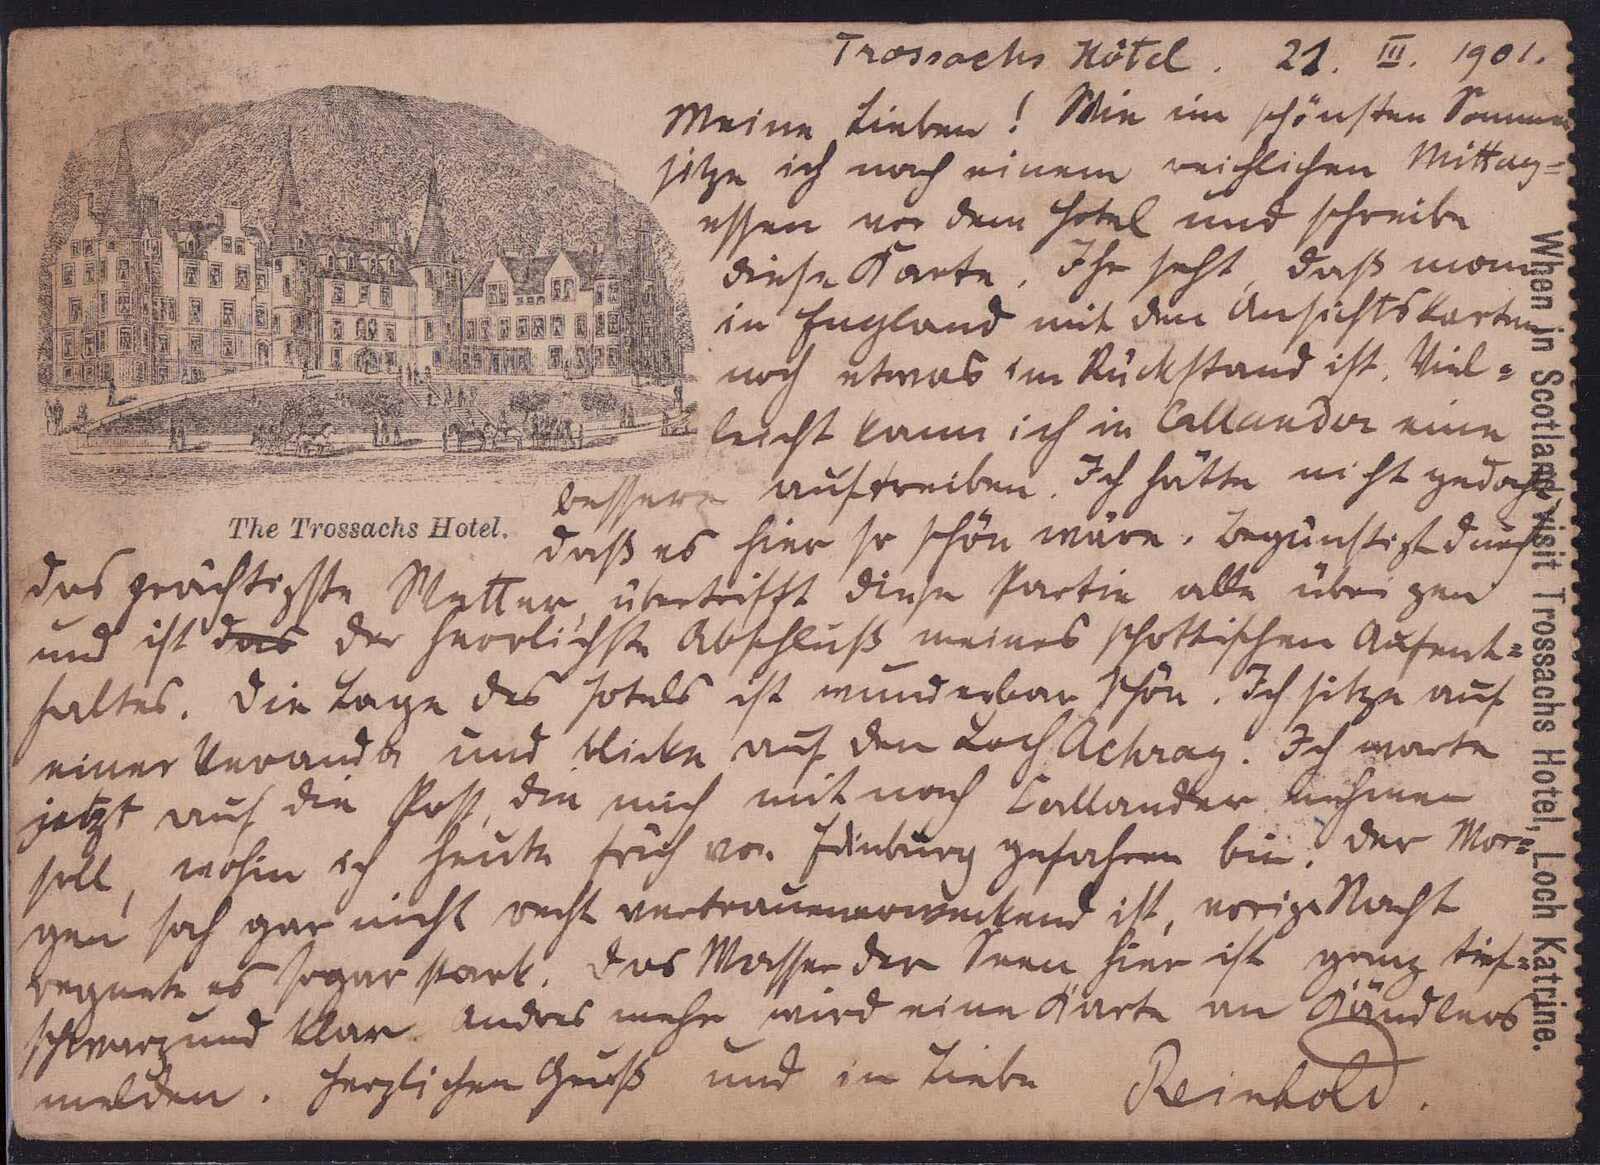 Trossachs Hôtel. 21. III. 1901.
Meine Lieben! Wie im schönsten Sommer
sitze ich nach einem reichlichen Mittag=
essen vor dem Hotel und schreibe
diese Karte. Ihr seht, daß man
in England mit den Ansichtskarten
noch etwas im Rückstand ist. Viel=
leicht kann ich in Callander eine
bessere auftreiben. Ich hätte nicht gedacht,
daß es hier so schön wäre. Begünstigt durch
The Trossachs Hotel.
das prächtigste Wetter, übertrifft diese Partie alle übrigen
und ist das der herrlichste Abschluß meines schottischen Aufent=
haltes. Die Lage des Hotels ist wunderbar schön. Ich sitze auf
einer Veranda und blicke auf den Loch Achray. Ich warte
jetzt auf die Post, die mich mit nach Callander nehmen
soll, wohin ich heute früh von Edinburg gefahren bin. Der Mor=
gen sah gar nicht recht vertrauenerweckend ist, vorige Nacht
regnete es sogar stark. Das Wasser der Seen hier ist ganz tief=
schwarz und klar. Andres mehr wird eine Karte an Kändlers
melden. Herzlichen Gruß und in Liebe Reinhold.
When in Scotland visit Trossachs Hotel, Loch Katrine.